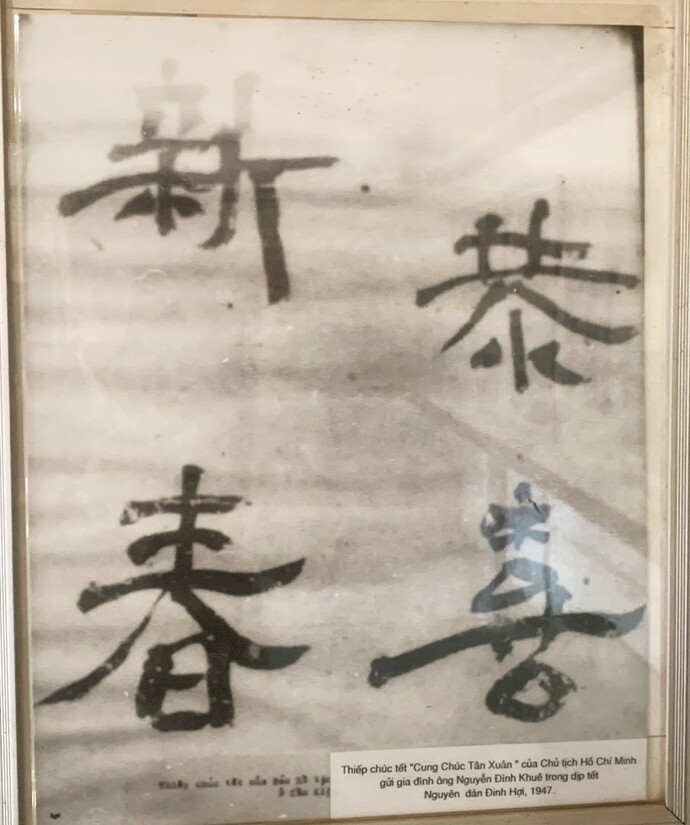 恭
新春
Thiếp chúc tết của Bác Hồ
Thiếp chúc tết "Cung Chúc Tân Xuân " của Chủ tịch Hồ Chí Minh
gửi gia đình ông Nguyễn Đình Khuê trong dịp tết
Nguyên đán Đinh Hợi, 1947.